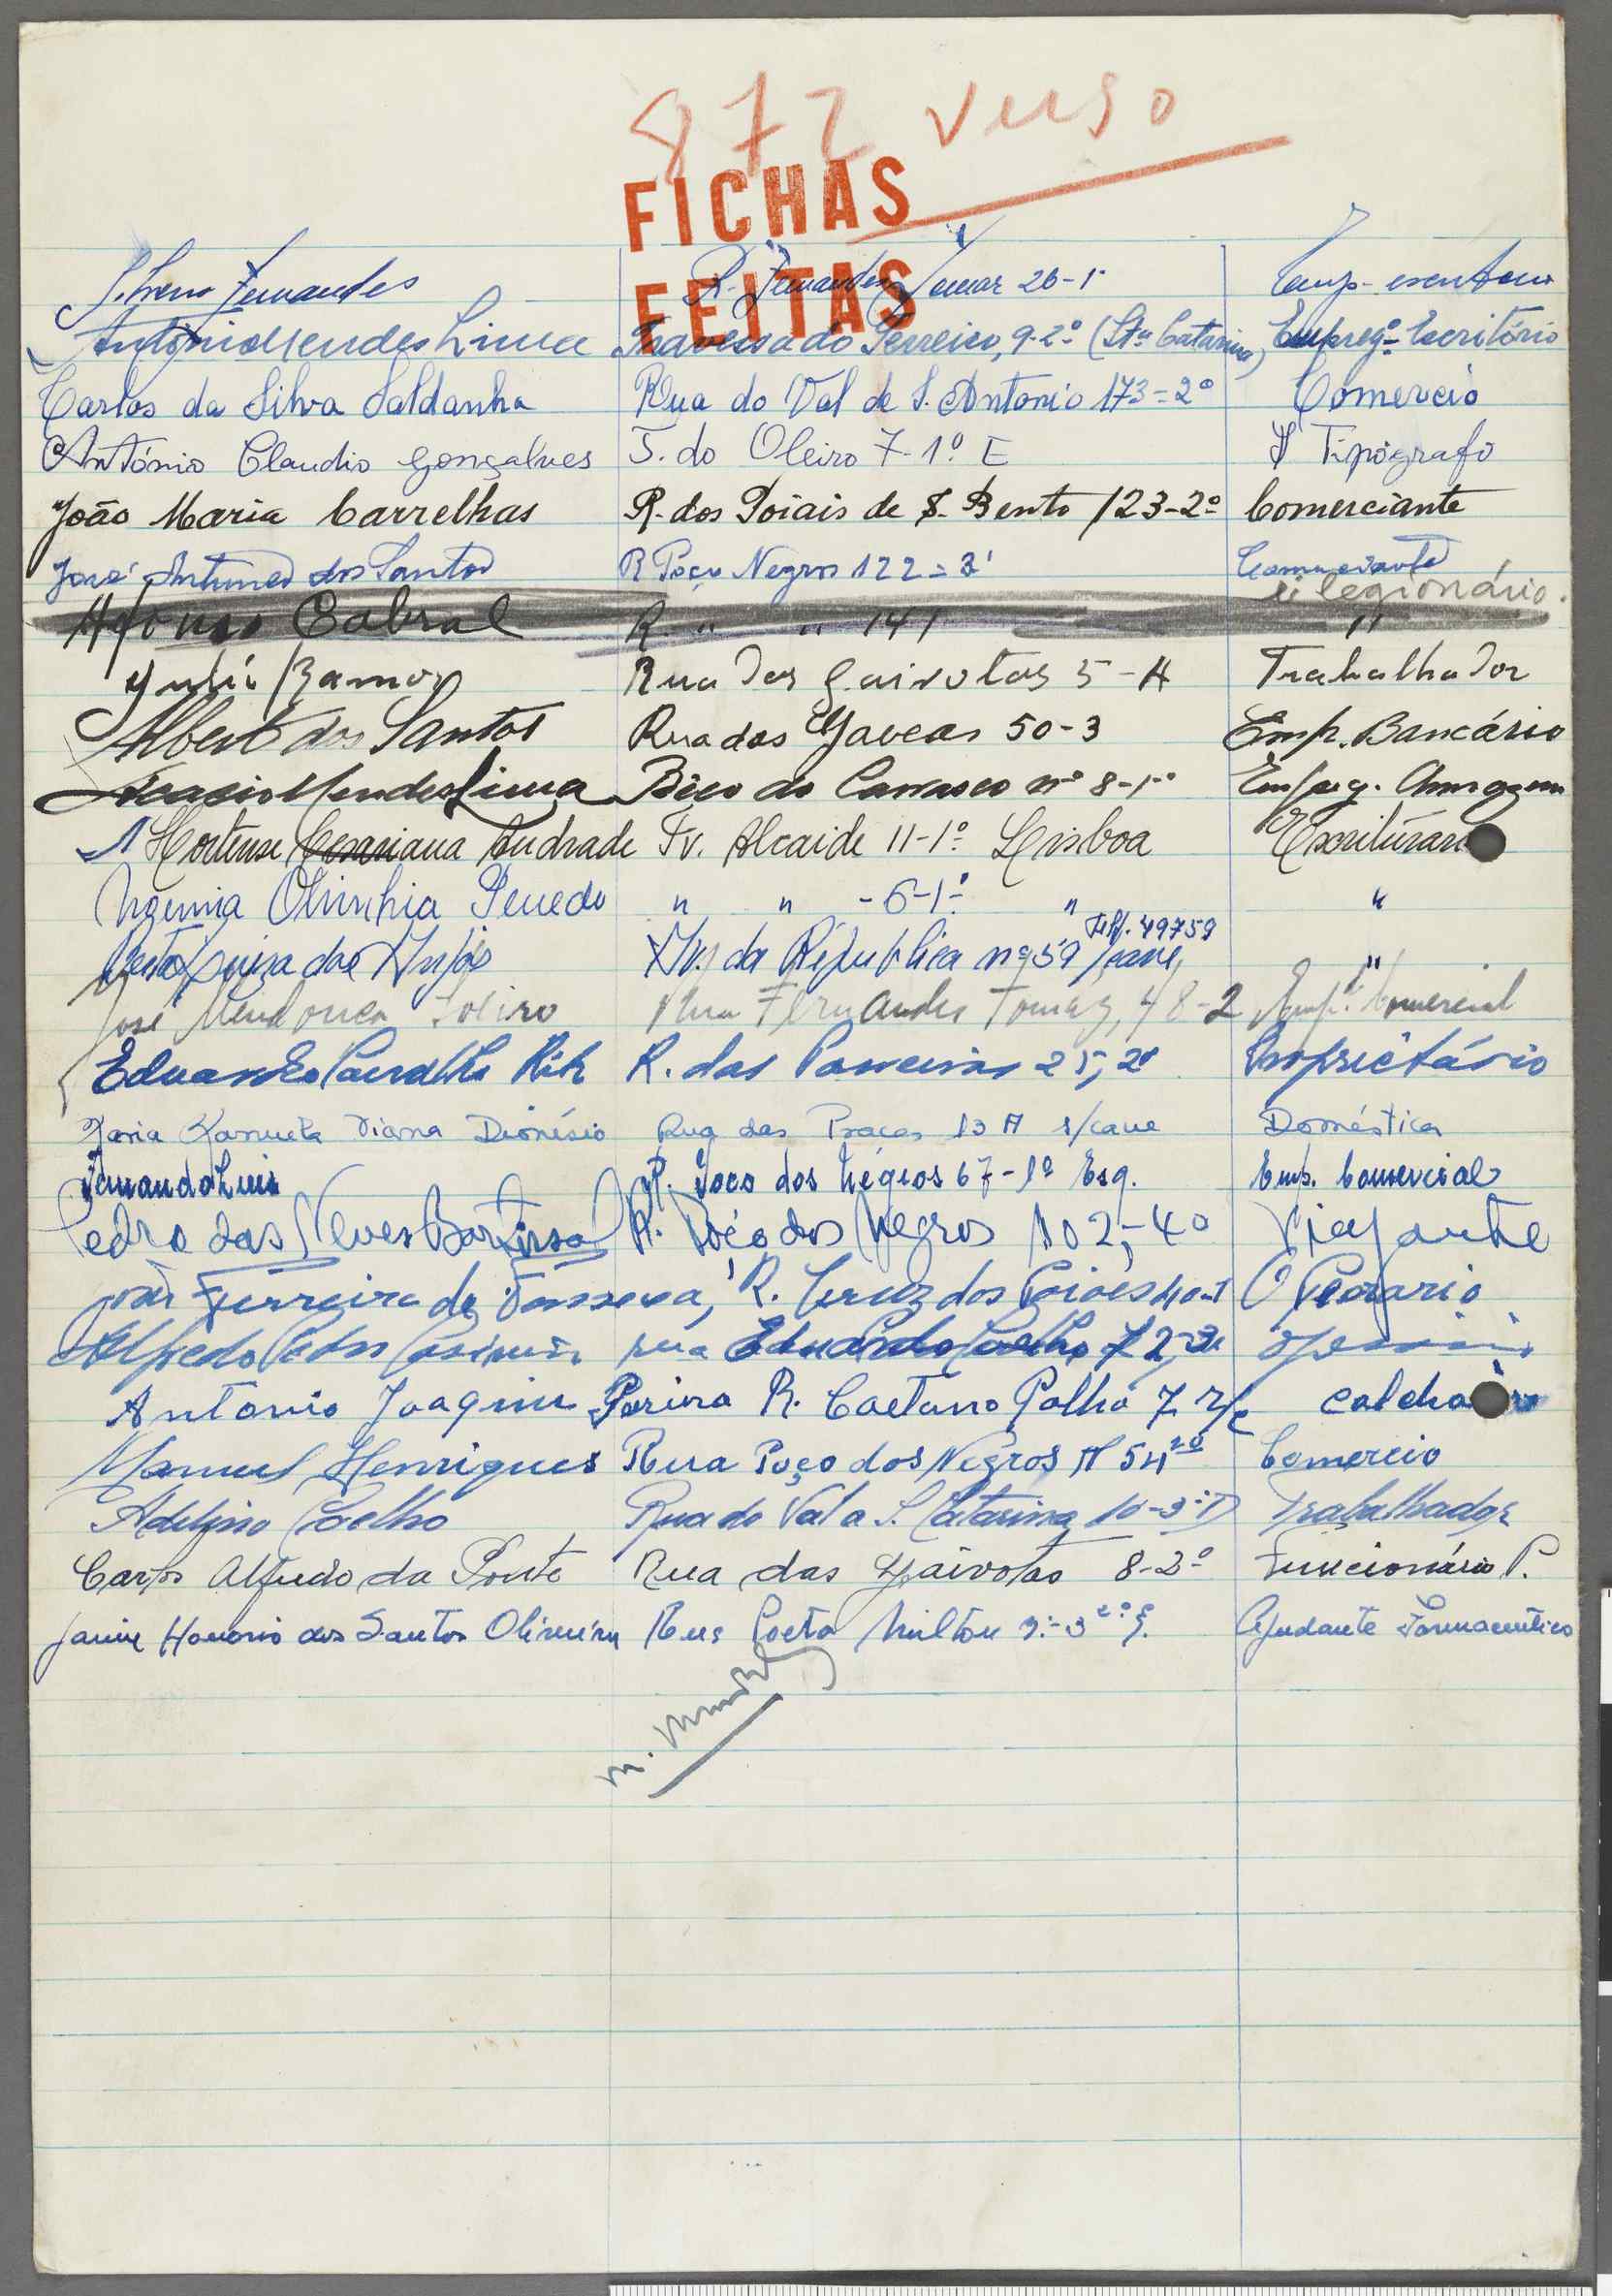 872 verso
FICHAS
FEITAS
Fernandes R. Fernandes Tomar 26-1º
António Mendes Lima Travessa do Terreiro, 9-2º (Stª Catarina) Empregº Escritório
Carlos da Silva Saldanha Rua do Val de S. Antonio 173=2º Comercio
António Claudio Gonçalves T. do Oleiro 7-1º E Tipógrafo
João Maria Carrelhas R. dos Poiais de S. Bento 123-2º Comerciante
José Antunes dos Santos R Poço Negros 122=3º Comerciante
é legionário.
Afonso Cabral R. " " 141 "
Ramos Rua das Gaivotas 5-A Trabalhador
Alberto dos Santos Rua das Gaveas 50-3 Emp. Bancário
Acacio Mendes Lima Bêco do Carrasco nº 8-1º Empreg. Armazem
Hortense Cesariana Andrade Tv. Alcaide 11-1º Lisboa Escriturari
Olimphia Penedo " " -6-1º " "
Telf. 49759
Luiza dos Anjos Av. da Républica nº 59 /cave "
José Mendonça Rua Fernandes Tomaz, 48-2 Empº Comercial
Eduardo Carvalho R. das Parreiras 25, 2º Proprietário
Maria Manuela Viana Dionísio Rua das Praças 13 A s/cave Doméstica
Fernando Luis R. Poço dos Négros 67-1º Esq. Emp. Comercial
Pedro das Neves R. Poço dos Negros 102,-4º Viajante
José Ferreira da Fonseca, R. Cruz dos Poiães 40-1 Operario
Alfredo Rua Eduardo Coelho 72,
António Joaquim Pereira R. Caetano Palha 7 r/c colcho
Manuel Henriques Rua Poço dos Negros Nº 54 2º Comercio
Adelino Coelho Rua do Val a S. Catarina 10-3º D Trabalhador
Carlos Alfredo da Ponte Rua das Gaivotas 8-2º Funcionário P.
Jaime Honorio dos Santos Oliveira Rua Poeta Milton 9-3º E. Ajudante Farmaceutico